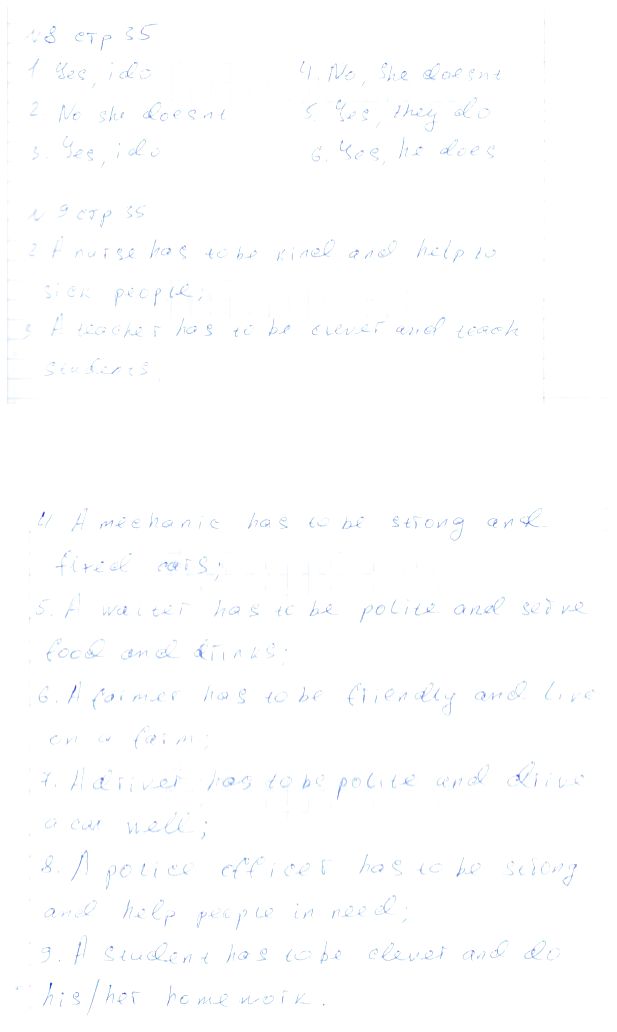 №8 стр 35
1 Yes, i do
2 No she doesnt
3. Yes, i do
4. No, she doesnt
5. Yes, they do
6. Yes, he does
№ 9 стр 35
2 A nurse has to be kind and help to
sick people;
3 A teacher has to be clever and teach
students.
4 A mechanic has to be strong and
fixed cars;
5. A waiter has to be polite and serve
food and drinks;
6. A farmer has to be friendly and live
on a farm;
7. A driver has to be polite and drive
a car well;
8. A police officer has to be strong
and help people in need;
9. A student has to be clever and do
his/her homework.